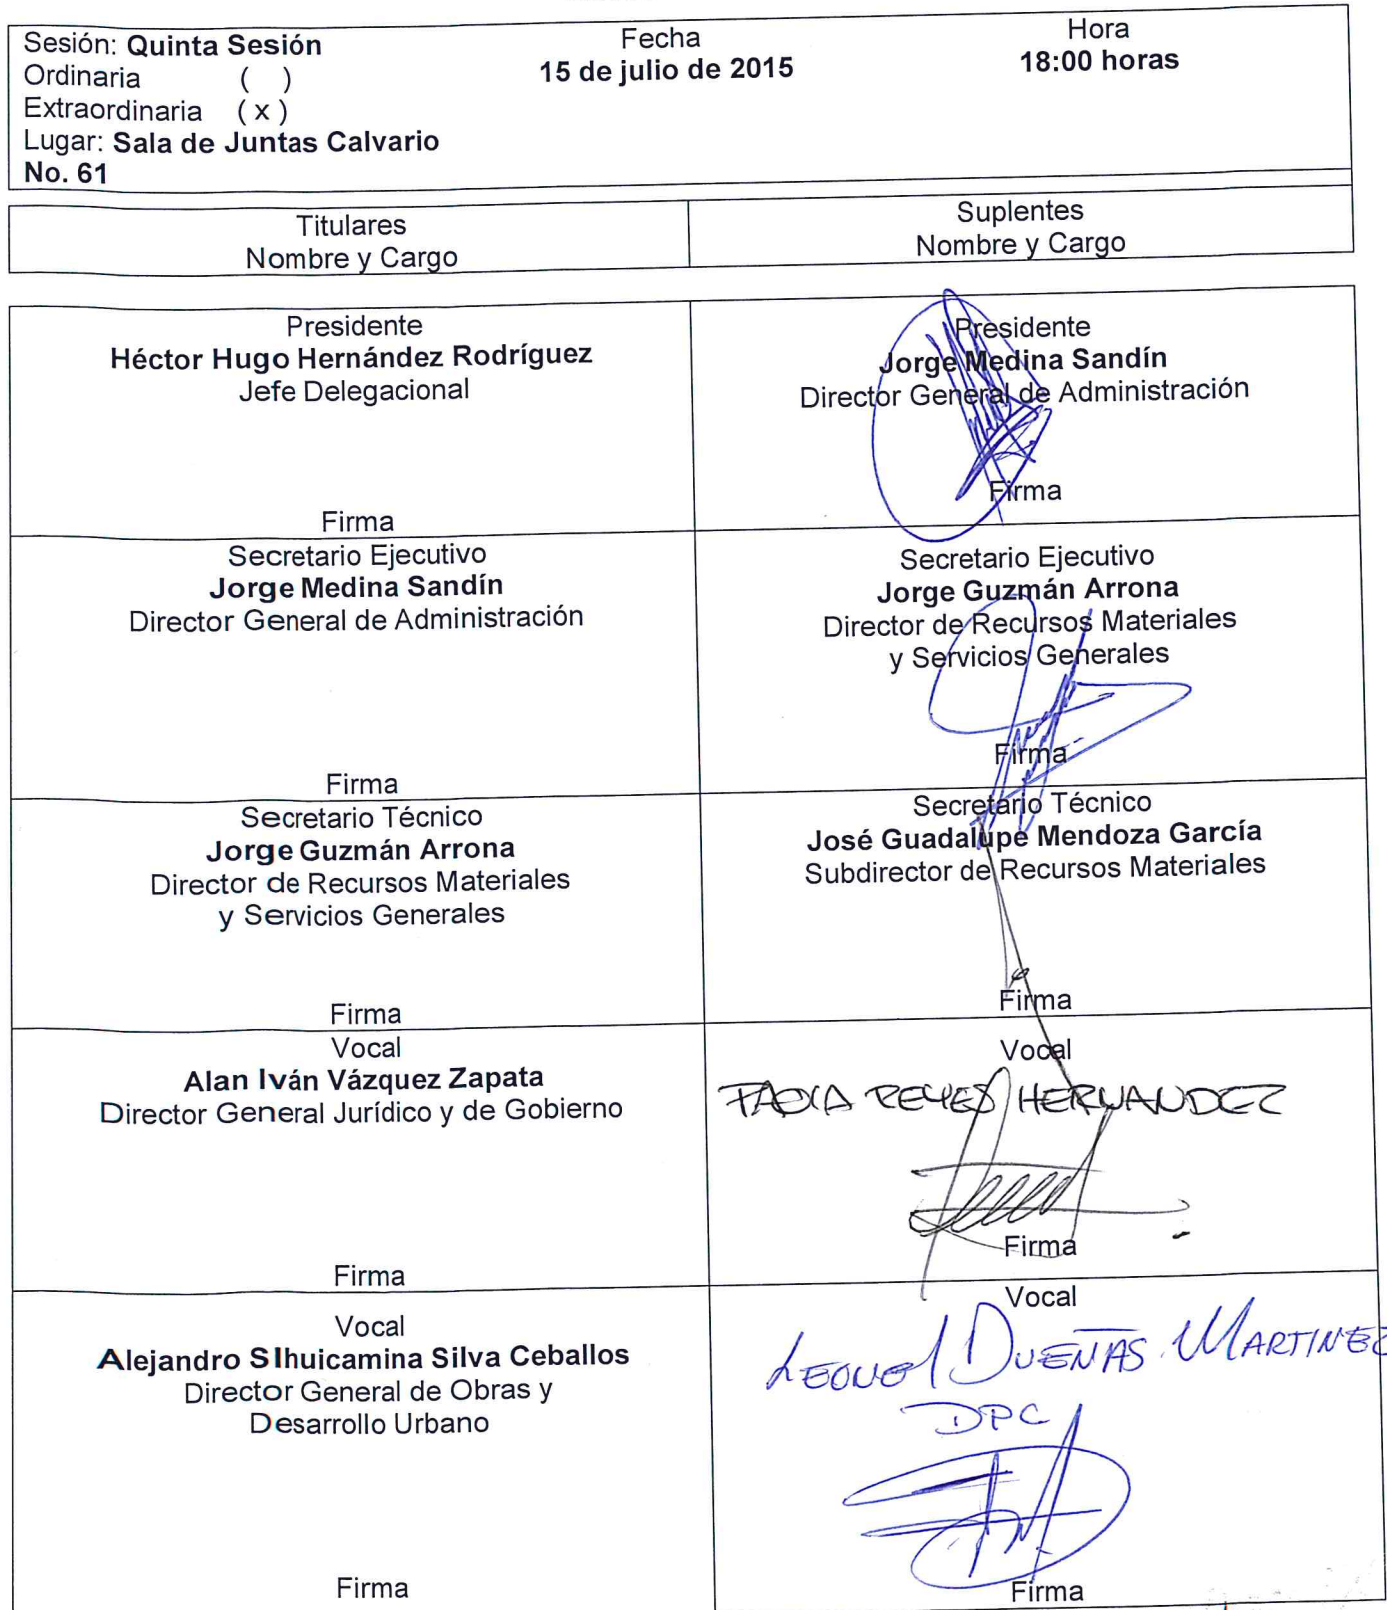 Sesión: Quinta Sesión
Ordinaria ( )
Extraordinaria ( x )
Lugar: Sala de Juntas Calvario
No. 61
Fecha
15 de julio de 2015
Hora
18:00 horas
Titulares
Nombre y Cargo
Suplentes
Nombre y Cargo
Presidente
Héctor Hugo Hernández Rodríguez
Jefe Delegacional
Firma
Presidente
Jorge Medina Sandín
Director General de Administración
Firma
Secretario Ejecutivo
Jorge Medina Sandín
Director General de Administración
Firma
Secretario Ejecutivo
Jorge Guzmán Arrona
Director de Recursos Materiales
y Servicios Generales
Firma
Secretario Técnico
Jorge Guzmán Arrona
Director de Recursos Materiales
y Servicios Generales
Firma
Secretario Técnico
José Guadalupe Mendoza García
Subdirector de Recursos Materiales
Firma
Vocal
Alan Iván Vázquez Zapata
Director General Jurídico y de Gobierno
Firma
Vocal
REYES HERNANDEZ
Firma
Vocal
Alejandro SIhuicamina Silva Ceballos
Director General de Obras y
Desarrollo Urbano
Firma
Vocal
LEONEL DUEÑAS MARTINEZ
DPC
Firma